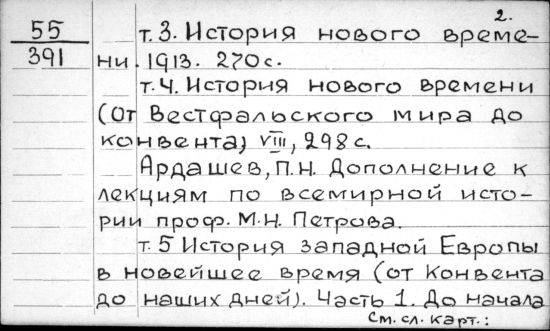 2.
55
391
т. 3. История нового време-
ни. 1913. 270 с.
т. 4. История нового времени
(от Вестфальского мира до
конвента) VIII, 298 с.
Ардашев, П.Н. Дополнение к
лекциям по всемирной исто-
рии проф. М.Н. Петрова.
т. 5 История Западной Европы
в новейшее время (от Конвента
до наших дней). Часть 1. До начала
См. сл. карт.: